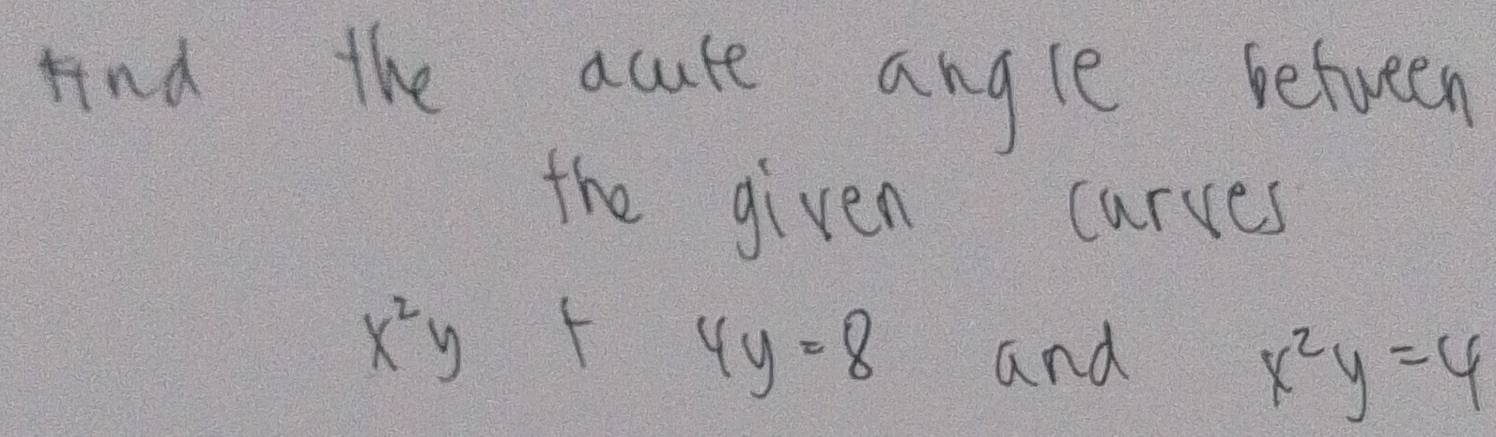 Find the acute angle between
the given curves
x²y + 4y = 8 and x²y = 4